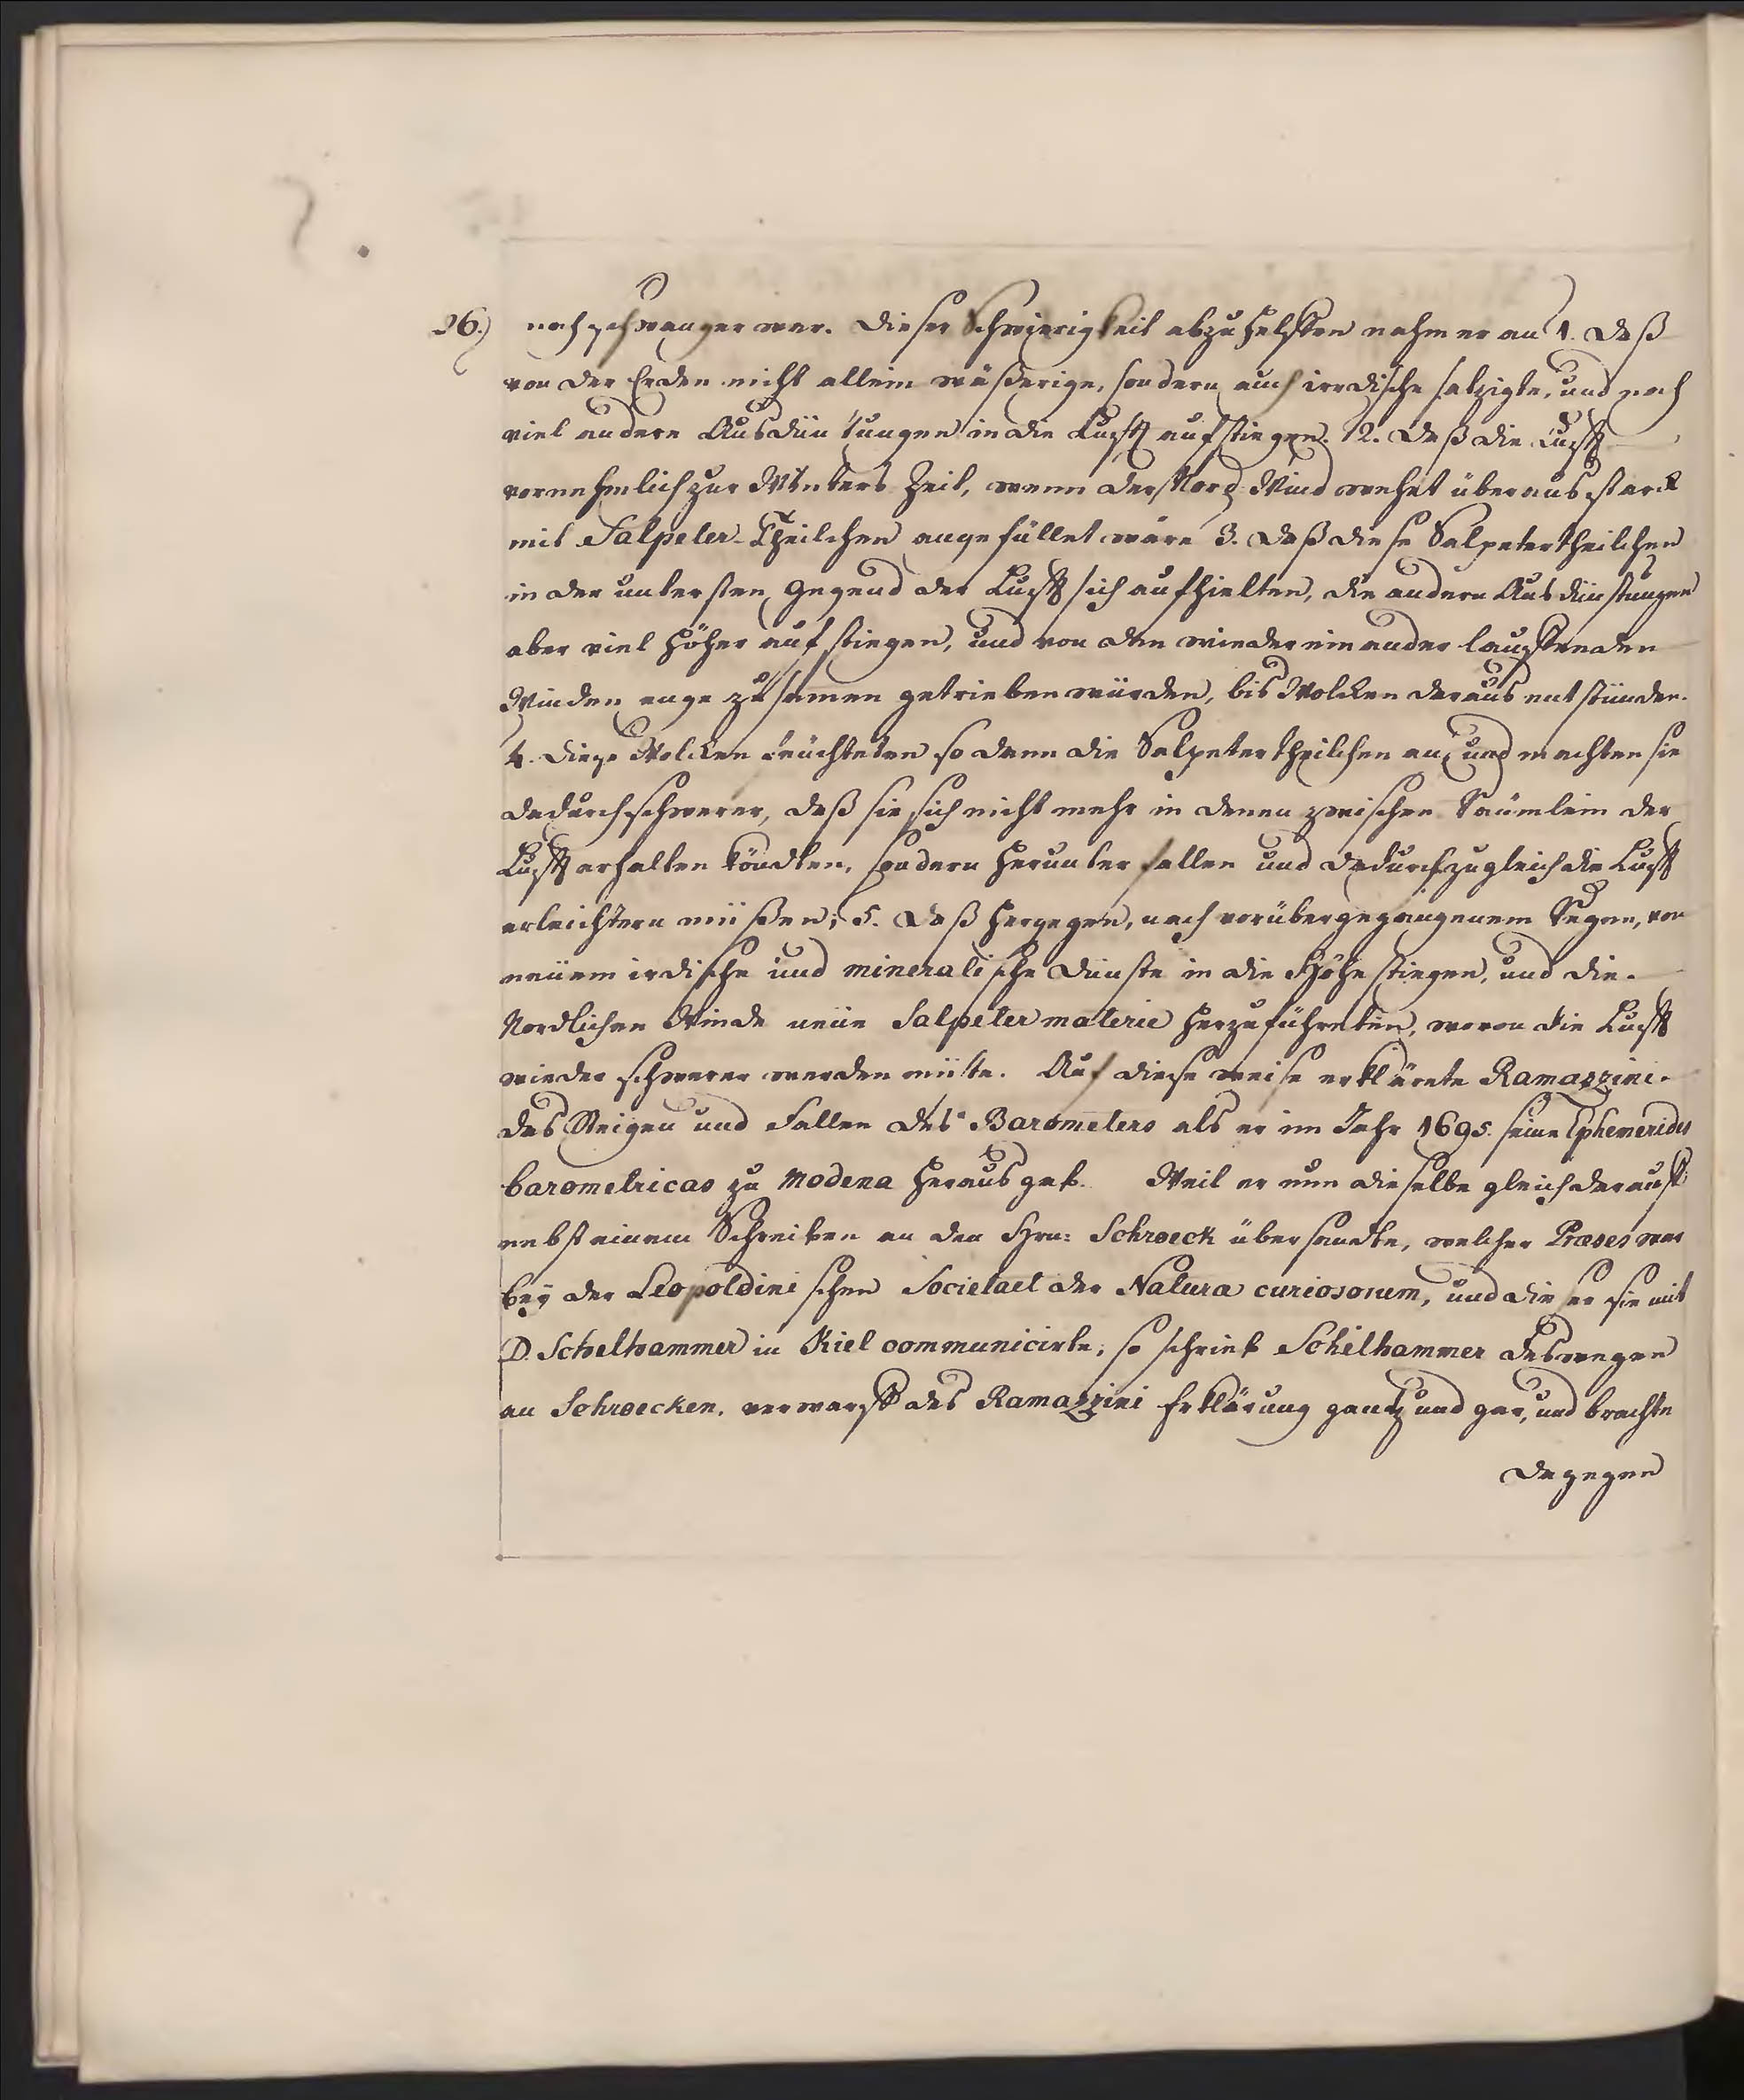 26.) noch schwanger war. Dieser Schwierigkeit abzuhelffen nahm er an 1. daß
von der Erden nicht allein wäßerige, sondern auch irrdische saltzigte, und noch
viel andere Ausdünstungen in die Lufft aufstiegen. 2. Daß die Lufft
vornehmlich zur Winters Zeit, wenn der Nord Wind wehet überaus starck
mit Salpeter-Theilchen angefüllet wäre 3. daß diese Salpetertheilchen
in der untersten Gegend der Lufft sich aufhielten, die andern Ausdünstungen
aber viel höher aufstiegen, und von den wieder einander lauffenden
Winden enge zusamen getrieben würden, bis Wolcken daraus entstünden.
4. Diese Wolcken feuchteten so dann die Salpetertheilchen an, und machten sie
dadurch schwerer, daß sie sich nicht mehr in denen zwischen Räumlein der
Lufft erhalten köndten, sondern herunter fallen und dadurch zugleich die Lufft
erleichtern müßen; 5. daß hergegen, nach vorübergegangenem Regen, von
neüem irdische und mineralische Dünste in die Höhe stiegen, und die
Nordlichen Winde neüe Salpeter materie herzuführeten, wovon die Lufft
wieder schwerer werden müste. Auf diese weise erklärete Ramazzini
das Steigen und Fallen des Barometers als er im Jahr 1695. seine Ephemerides
barometricas zu Modena heraus gab. Weil er nun dieselbe gleich darauff
nebst einem Schreiben an den Hrn: Schroeck übersandte, welcher Præses war
beÿ der Leopoldinischen Societaet der Naturæ curiosorum, und dieser sie mit
D. Schelhammer in Kiel communicirte; so schrieb Schelhammer deswegen
an Schroecken, verwarff des Ramazzini Erklärung gantz und gar, und brachte
dagegen